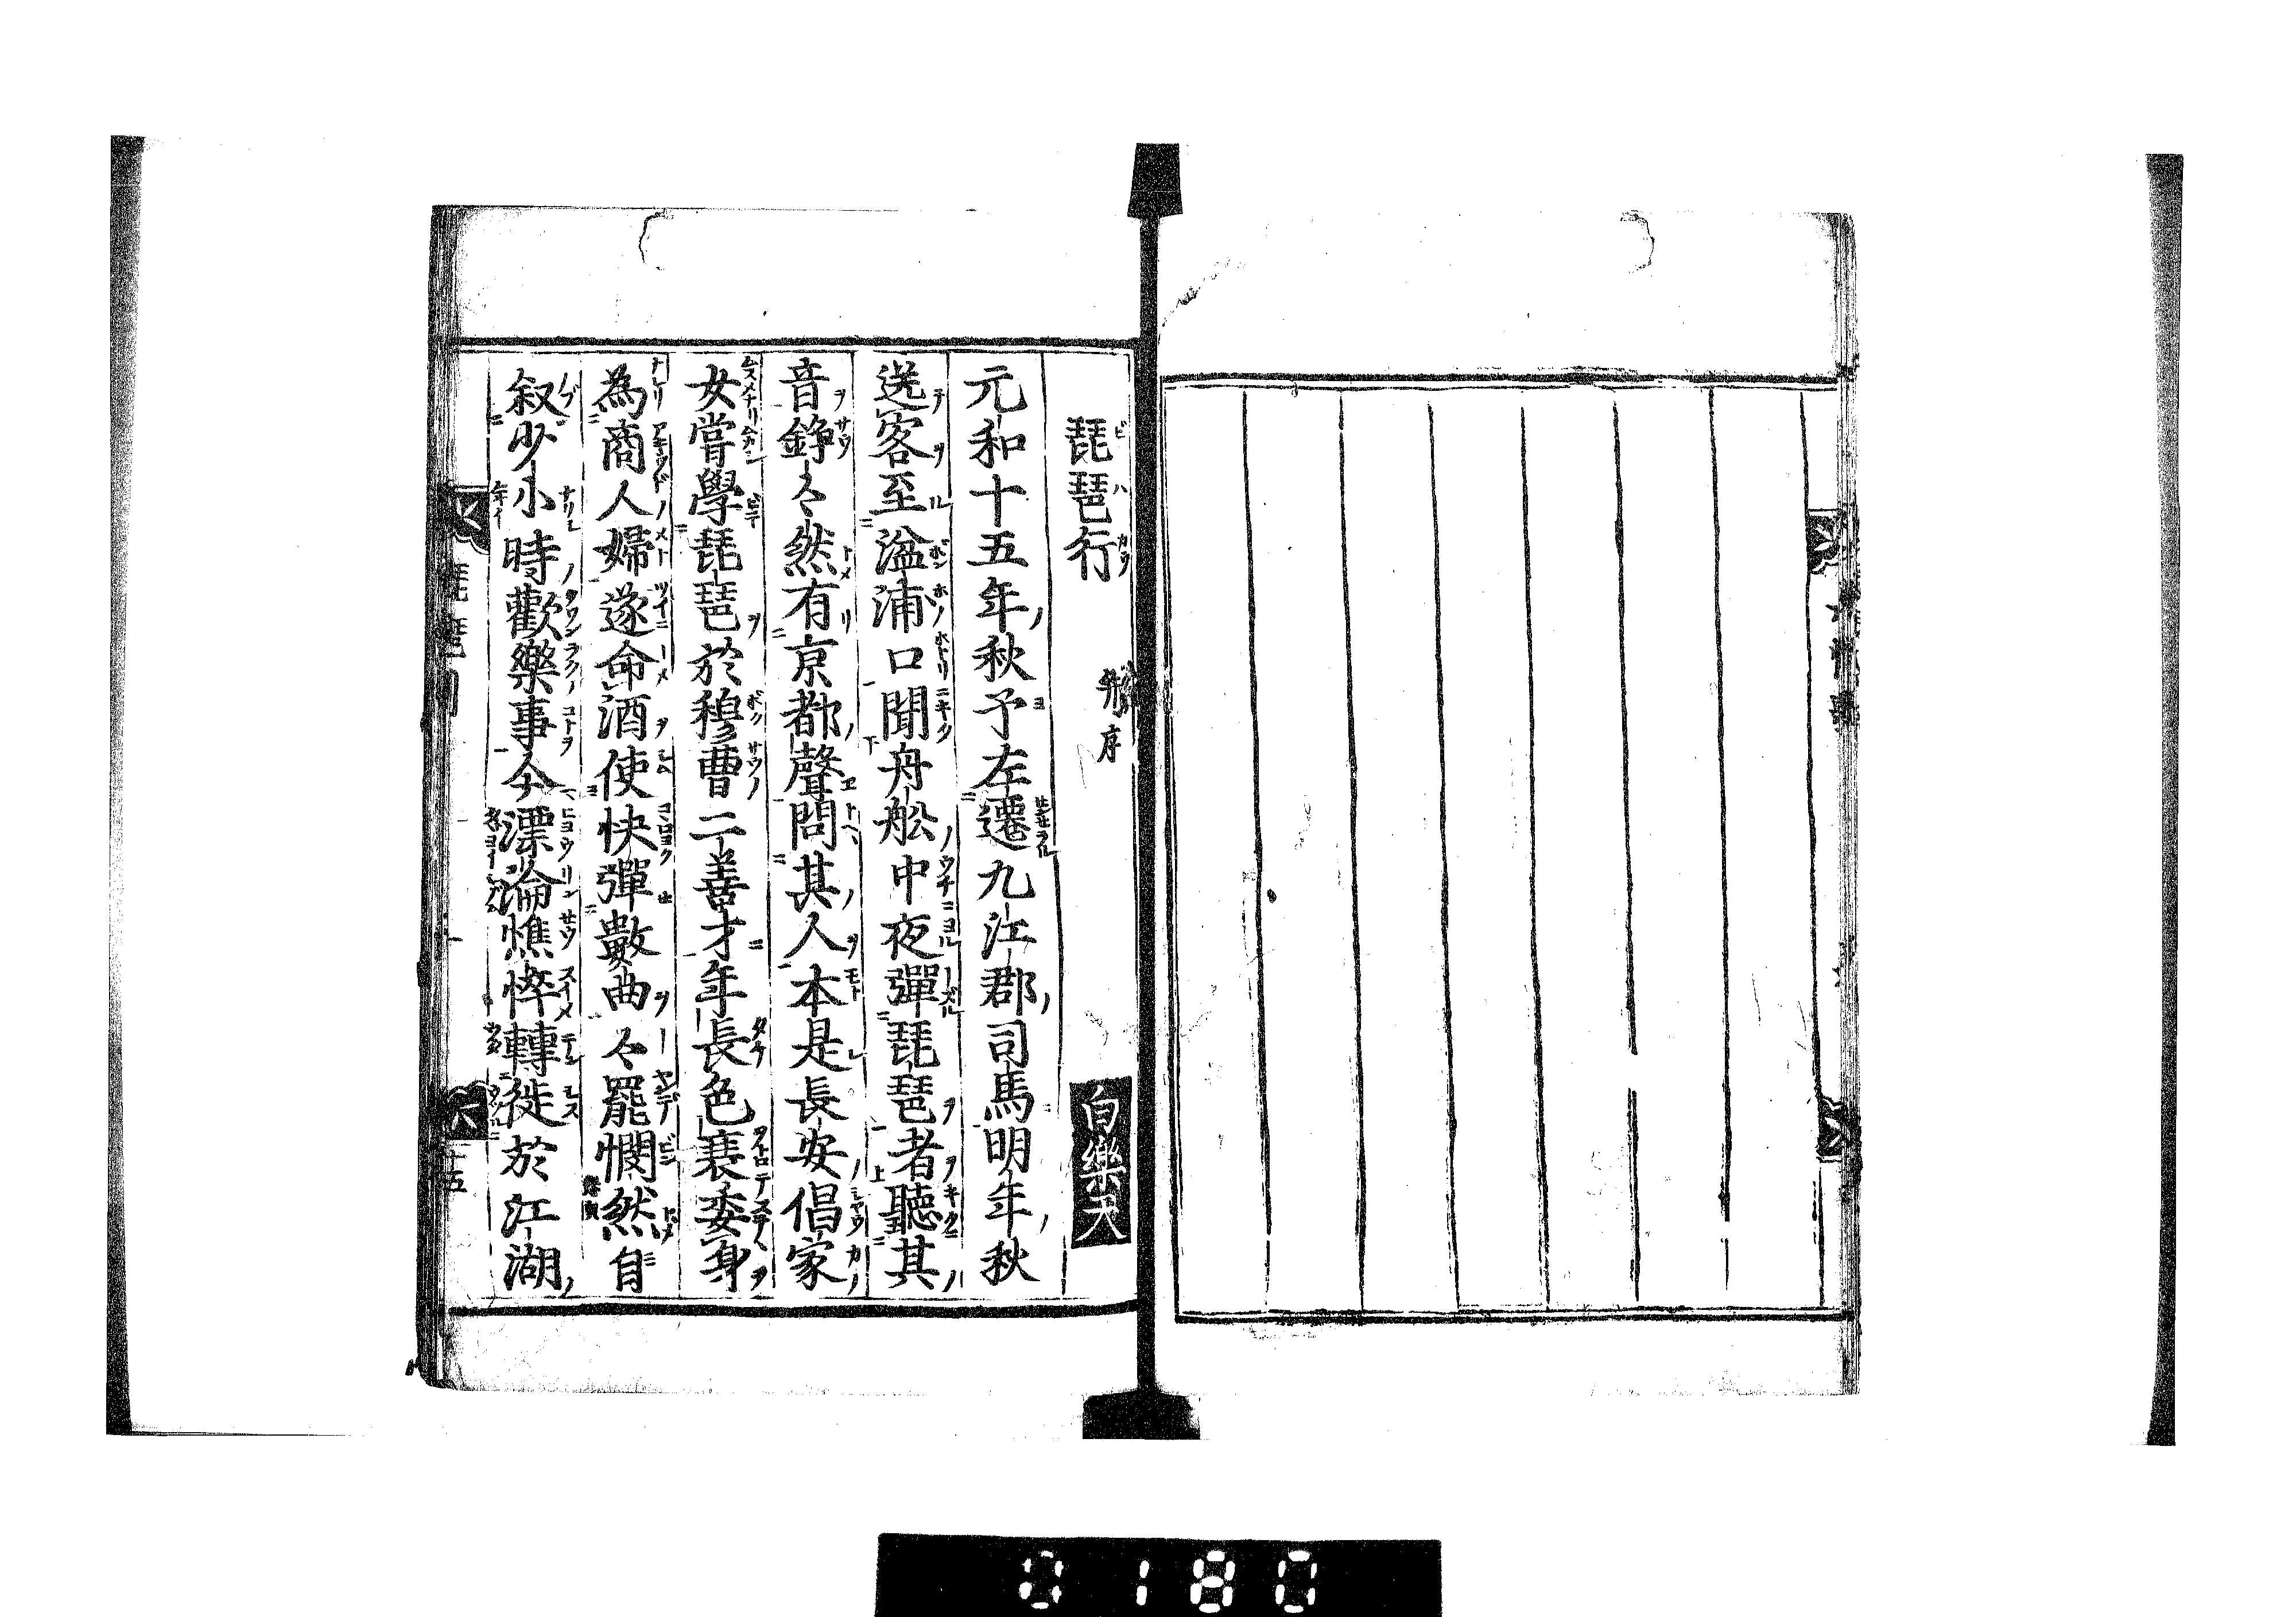 琵琶行 幷序 白樂天
元和十五年秋予左遷九江郡司馬明年秋
送客至湓浦口聞舟舩中夜彈琵琶者聽其
音錚〻然有京都聲問其人本是長安倡家
女嘗學琵琶於穆曹二善才年長色衰委身
為商人婦遂命酒使快彈數曲〻罷憫然自
叙少小時歡樂事今漂淪憔悴轉徙於江湖
五
0180